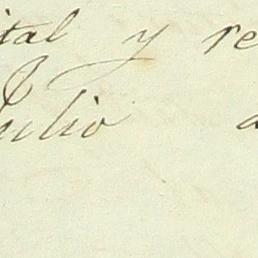 ital y re
Julio a